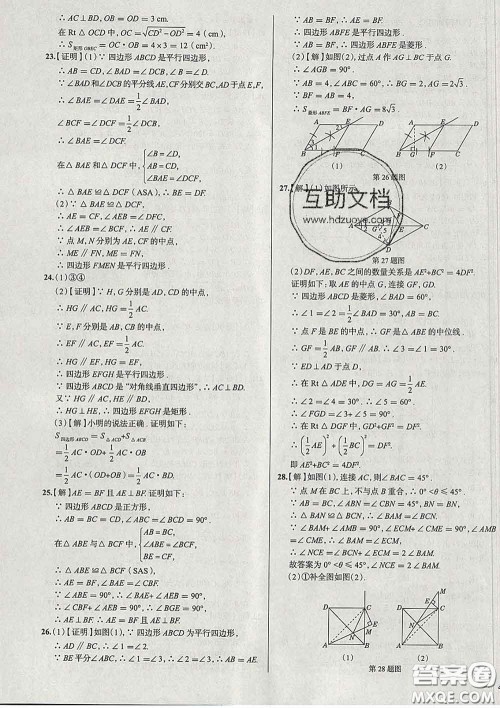 ∴ AC⊥BD,∴ OB=OD=3 cm.
在 Rt△OCD 中,OC=√CD²−OD²=4(cm),
∴ S菱形 OBEC=OC·OB=4×3=12(cm²).
23.【证明】(1)∵ 四边形 ABCD 是平行四边形,
∴ AB=CD,∠BAD=∠DCB,AB∥CD.
∵ ∠BAD 和∠DCB 的平分线 AE,CF 分别交 BC,AD 于点 E,F,
∴ ∠BAE=∠DAE=1/2∠BAD,
∠BCF=∠DCF=1/2∠DCB,
∴ ∠BAE=∠DCF.
在△BAE 和△DCF 中,{∠B=∠D,
AB=CD,
∠BAE=∠DCF,
∴ △BAE≌△DCF(ASA),∴ BE=DF.
(2)∵ △BAE≌△DCF,
∴ AE=CF,∠AEB=∠DFC,
∴ ∠AEB=∠BCF,∴ AE∥CF.
∵ 点 M,N 分别为 AE,CF 的中点,
∴ ME∥FN,ME=FN,
∴ 四边形 FMEN 是平行四边形.
24.(1)③④
(2)【证明】∵ H,G 分别是 AD,CD 的中点,
∴ HG∥AC,HG=1/2AC.
又∵ E,F 分别是 AB,CB 的中点,
∴ EF∥AC,EF=1/2AC,
∴ HG∥EF,HG=EF,
∴ 四边形 EFGH 是平行四边形.
∵ 四边形 ABCD 是“对角线垂直四边形”,∴ AC⊥BD.
又∵ HG∥AC,EH∥BD,
∴ HG⊥HE,∴ 四边形 EFGH 是矩形.
(3)【解】小明的说法正确. 证明如下:
S四边形 ABCD=S△ACD+S△ACB
=1/2AC·OD+1/2AC·OB
=1/2AC·(OD+OB)=1/2AC·BD.
25.【解】AE=BF 且 AE⊥BF. 证明如下:
∵ 四边形 ABCD 是正方形,
∴ AB=BC=CD,∠ABC=∠BCD=90°.
在△ABE 与△BCF 中,{AB=BC,
∠ABE=∠BCF,
BE=CF,
∴ △ABE≌△BCF(SAS),
∴ AE=BF,∠BAE=∠CBF.
∵ ∠BAE+∠AEB=90°,
∴ ∠CBF+∠AEB=90°,
∴ AE⊥BF,∴ AE=BF 且 AE⊥BF.
26.(1)【证明】如图(1),∵ 四边形 ABCD 为平行四边形,
∴ AD∥BC,∴ ∠1=∠2.
∵ BE平分∠ABC,∴ ∠2=∠3,∴ ∠1=∠3,∴ AB=AE.
∴ 四边形 ABFE 是平行四边形.
∴ 四边形 ABFE 是菱形.
(2)【解】如图(2),过点 A 作 AG⊥BC 于点 G,
∴ ∠AGB=90°.
∵ ∠ABC=60°,∴ ∠BAG=30°.
∵ AB=4,∴ BG=2,∴ AG=2√3.
∴ S菱形 ABFE=BF·AG=8√3.
(1)
(2)
第 26 题图
27.【解】(1)如图所示.
互助文档
www.hdzuoye.com
第 27 题图
(2)DF,AE,BC 之间的数量关系是 AE²+BC²=4DF².
证明如下:取 AE 的中点 G,连接 GF,GD.
∵ 四边形 ABDC 是菱形,∠BAD=60°,
∴ ∠1=∠2=1/2∠BAD=30°.
∵ 点 F 是 BE 的中点,∴ GF 是△AEB 的中位线.
∴ GF=1/2AB,GF∥AB,∴ ∠3=∠1=30°.
∵ ED⊥AD 于点 D,
∴ 在 Rt△ADE 中,DG=AG=1/2AE.
∴ ∠2=∠4=30°,∴ ∠5=∠2+∠4=60°,
∴ ∠FGD=∠3+∠5=90°.
∴ 在 Rt△DGF 中,GD²+GF²=DF²,
∴ (1/2AE)²+(1/2BC)²=DF²,
即 AE²+BC²=4DF².
28.【解】如图(1),连接 AC,则∠BAC=45°.
∵ 点 M 在 BC 上,不与点 B 重合,∴ 0°<θ≤45°.
∵ △BAN≌△BCN,∴ ∠BAM=∠BCN.
∵ ∠BAM+∠AMB=90°,∠ECM+∠CME=90°,∠CME=∠AMB,
∴ ∠BAM=∠ECM,∴ ∠BCN=∠ECM,
∴ ∠NCE=2∠BCN=2∠BAM.
故答案为 0°<θ≤45°,∠NCE=2∠BAM.
(2)①补全图如图(2).
(1)
(2)
第 28 题图
答案圈
MXQE.COM